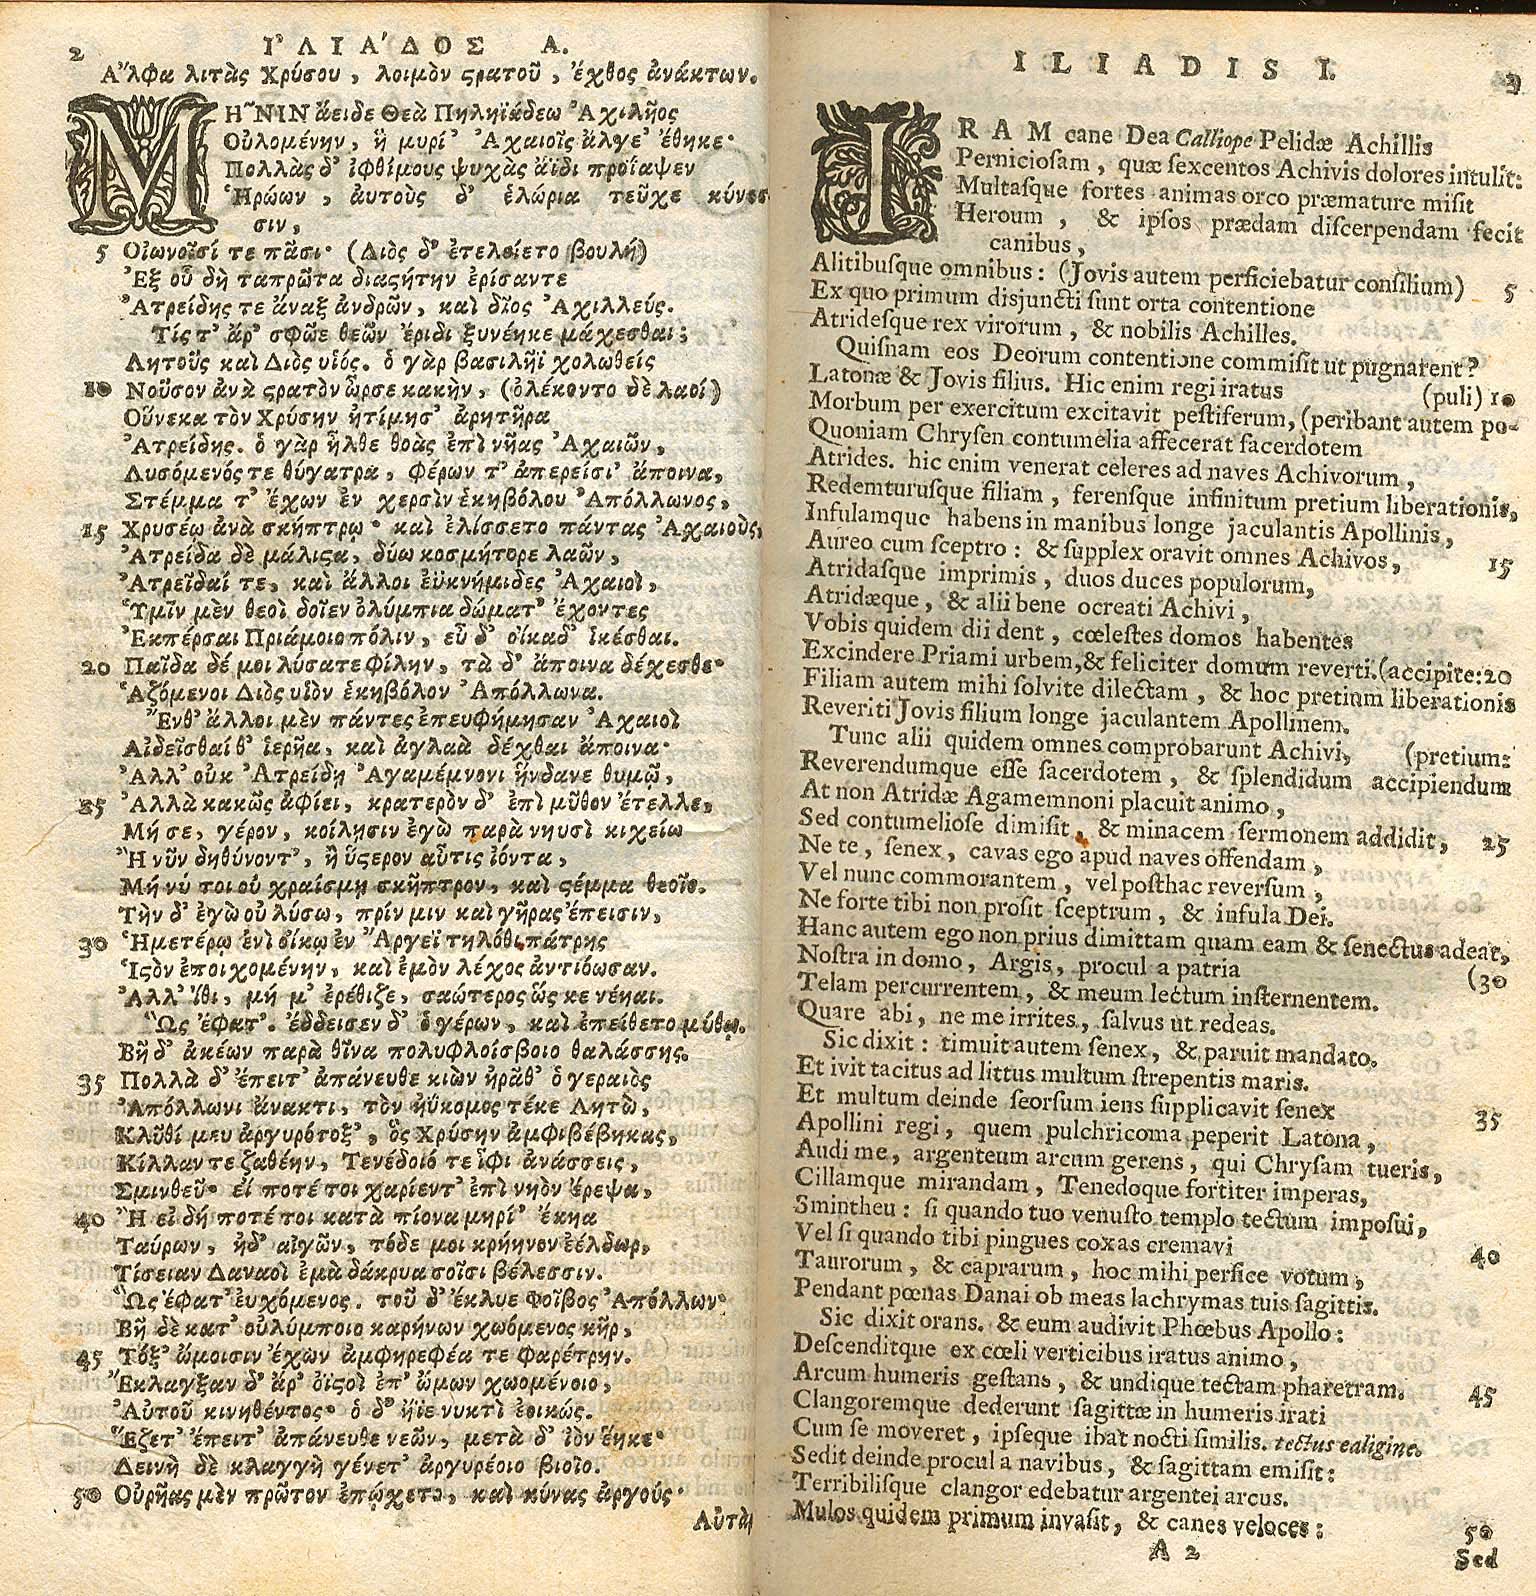 2
ἸΛΙΆΔΟΣ Α.
Ἄλφα λιτὰς Χρύσου, λοιμὸν ϛρατοῦ, ἔχθος ἀνάκτων.
ΜΗ͂ΝΙΝ ἄειδε Θεὰ Πηληϊάδεω Ἀχιλῆος
Οὐλομένην, ἣ μυρί' Ἀχαιοῖς ἄλγε' ἔθηκε·
Πολλὰς δ' ἰφθίμους ψυχὰς ἄϊδι προΐαψεν
Ἡρώων, ἀυτοὺς δ' ἑλώρια τεῦχε κύνεσ-
σιν,
5 Οἰωνοῖσί τε πᾶσι· (Διὸς δ' ἐτελείετο βουλή)
Ἐξ οὗ δὴ ταπρῶτα διαϛήτην ἐρίσαντε
Ἀτρείδης τε ἄναξ ἀνδρῶν, καὶ δῖος Ἀχιλλεύς.
Τίς τ' ἄρ' σφῶε θεῶν ἔριδι ξυνέηκε μάχεσθαι;
Λητοῦς καὶ Διὸς υἱός. ὁ γὰρ βασιλῆϊ χολωθεὶς
10 Νοῦσον ἀνὰ ϛρατὸν ὦρσε κακὴν, (ὀλέκοντο δὲ λαοί)
Οὕνεκα τὸν Χρύσην ἠτίμησ' ἀρητῆρα
Ἀτρείδης. ὁ γὰρ ἦλθε θοὰς ἐπὶ νῆας Ἀχαιῶν,
Λυσόμενός τε θύγατρα, φέρων τ' ἀπερείσι' ἄποινα,
Στέμμα τ' ἔχων ἐν χερσὶν ἑκηβόλου Ἀπόλλωνος,
15 Χρυσέῳ ἀνὰ σκήπτρῳ· καὶ ἐλίσσετο πάντας Ἀχαιοὺς,
Ἀτρείδα δὲ μάλιϛα, δύω κοσμήτορε λαῶν,
Ἀτρεῖδαί τε, καὶ ἄλλοι ἐϋκνήμιδες Ἀχαιοὶ,
Ὑμῖν μὲν θεοὶ δοῖεν ὀλύμπια δώματ' ἔχοντες
Ἐκπέρσαι Πριάμοιο πόλιν, εὖ δ' οἴκαδ' ἱκέσθαι.
20 Παῖδα δέ μοι λύσατε φίλην, τὰ δ' ἄποινα δέχεσθε·
Ἁζόμενοι Διὸς υἱὸν ἑκηβόλον Ἀπόλλωνα.
Ἔνθ' ἄλλοι μὲν πάντες ἐπευφήμησαν Ἀχαιοὶ
Αἰδεῖσθαί θ' ἱερῆα, καὶ ἀγλαὰ δέχθαι ἄποινα·
Ἀλλ' οὐκ Ἀτρείδῃ Ἀγαμέμνονι ἥνδανε θυμῷ,
25 Ἀλλὰ κακῶς ἀφίει, κρατερὸν δ' ἐπὶ μῦθον ἔτελλε,
Μή σε, γέρον, κοίλησιν ἐγὼ παρὰ νηυσὶ κιχείω
Ἢ νῦν δηθύνοντ', ἢ ὕϛερον αὖτις ἰόντα,
Μή νύ τοι οὐ χραίσμῃ σκῆπτρον, καὶ ϛέμμα θεοῖο.
Τὴν δ' ἐγὼ οὐ λύσω, πρίν μιν καὶ γῆρας ἔπεισιν,
30 Ἡμετέρῳ ἐνὶ οἴκῳ ἐν Ἄργεϊ τηλόθι πάτρης
Ἱϛὸν ἐποιχομένην, καὶ ἐμὸν λέχος ἀντιόωσαν.
Ἀλλ' ἴθι, μή μ' ἐρέθιζε, σαώτερος ὥς κε νέηαι.
Ὣς ἔφατ'. ἔδδεισεν δ' ὁ γέρων, καὶ ἐπείθετο μύθῳ.
Βῆ δ' ἀκέων παρὰ θῖνα πολυφλοίσβοιο θαλάσσης.
35 Πολλὰ δ' ἔπειτ' ἀπάνευθε κιὼν ἠρᾶθ' ὁ γεραιὸς
Ἀπόλλωνι ἄνακτι, τὸν ἠΰκομος τέκε Λητὼ,
Κλῦθί μευ ἀργυρότοξ', ὃς Χρύσην ἀμφιβέβηκας,
Κίλλαν τε ζαθέην, Τενέδοιό τε ἶφι ἀνάσσεις,
Σμινθεῦ· εἴ ποτέ τοι χαρίεντ' ἐπὶ νηὸν ἔρεψα,
40 Ἢ εἰ δή ποτέ τοι κατὰ πίονα μηρί' ἔκηα
Ταύρων, ἠδ' αἰγῶν, τόδε μοι κρήηνον ἐέλδωρ,
Τίσειαν Δαναοὶ ἐμὰ δάκρυα σοῖσι βέλεσσιν.
Ὣς ἔφατ' ἐυχόμενος. τοῦ δ' ἔκλυε Φοῖβος Ἀπόλλων·
Βῆ δὲ κατ' οὐλύμποιο καρήνων χωόμενος κῆρ,
45 Τόξ' ὤμοισιν ἔχων ἀμφηρεφέα τε φαρέτρην.
Ἔκλαγξαν δ' ἄρ' ὀϊϛοὶ ἐπ' ὤμων χωομένοιο,
Ἀυτοῦ κινηθέντος· ὁ δ' ἤϊε νυκτὶ ἐοικώς.
Ἕζετ' ἔπειτ' ἀπάνευθε νεῶν, μετὰ δ' ἰὸν ἕηκε·
Δεινὴ δὲ κλαγγὴ γένετ' ἀργυρέοιο βιοῖο.
50 Οὐρῆας μὲν πρῶτον ἐπῴχετο, καὶ κύνας ἀργούς·
Αὐτὰρ
ILIADIS I. 3
IRAM cane Dea Calliope Pelidæ Achillis
Pernicioſam, quæ ſexcentos Achivis dolores intulit:
Multaſque fortes animas orco præmature miſit
Heroum, & ipſos prædam diſcerpendam fecit
canibus,
Alitibuſque omnibus: (Jovis autem perficiebatur conſilium) 5
Ex quo primum disjuncti ſunt orta contentione
Atrideſque rex virorum, & nobilis Achilles.
Quiſnam eos Deorum contentione commiſit ut pugnarent?
Latonæ & Jovis filius. Hic enim regi iratus (puli) 10
Morbum per exercitum excitavit peſtiferum, (peribant autem po-
Quoniam Chryſen contumelia affecerat ſacerdotem
Atrides. hic enim venerat celeres ad naves Achivorum,
Redemturuſque filiam, ferenſque infinitum pretium liberationis,
Infulamque habens in manibus longe jaculantis Apollinis,
Aureo cum ſceptro: & ſupplex oravit omnes Achivos, 15
Atridaſque imprimis, duos duces populorum,
Atridæque, & alii bene ocreati Achivi,
Vobis quidem dii dent, cœleſtes domos habentes
Excindere Priami urbem, & feliciter domum reverti. (accipite: 20
Filiam autem mihi ſolvite dilectam, & hoc pretium liberationis
Reveriti Jovis filium longe jaculantem Apollinem.
Tunc alii quidem omnes comprobarunt Achivi, (pretium:
Reverendumque eſſe ſacerdotem, & ſplendidum accipiendum
At non Atridæ Agamemnoni placuit animo,
Sed contumelioſe dimiſit, & minacem ſermonem addidit, 25
Ne te, ſenex, cavas ego apud naves offendam,
Vel nunc commorantem, vel poſthac reverſum,
Ne forte tibi non proſit ſceptrum, & infula Dei.
Hanc autem ego non prius dimittam quam eam & ſenectus adeat,
Noſtra in domo, Argis, procul a patria (30
Telam percurrentem, & meum lectum inſternentem.
Quare abi, ne me irrites, ſalvus ut redeas.
Sic dixit: timuit autem ſenex, & paruit mandato.
Et ivit tacitus ad littus multum ſtrepentis maris.
Et multum deinde ſeorſum iens ſupplicavit ſenex 35
Apollini regi, quem pulchricoma peperit Latona,
Audi me, argenteum arcum gerens, qui Chryſam tueris,
Cillamque mirandam, Tenedoque fortiter imperas,
Smintheu: ſi quando tuo venuſto templo tectum impoſui,
Vel ſi quando tibi pingues coxas cremavi 40
Taurorum, & caprarum, hoc mihi perfice votum,
Pendant pœnas Danai ob meas lachrymas tuis ſagittis.
Sic dixit orans. & eum audivit Phœbus Apollo:
Deſcenditque ex cœli verticibus iratus animo,
Arcum humeris geſtans, & undique tectam pharetram. 45
Clangoremque dederunt ſagittæ in humeris irati
Cum ſe moveret, ipſeque ibat nocti ſimilis. tectus caligine.
Sedit deinde procul a navibus, & ſagittam emiſit:
Terribiliſque clangor edebatur argentei arcus.
Mulos quidem primum invaſit, & canes veloces: 50
A 2 Sed